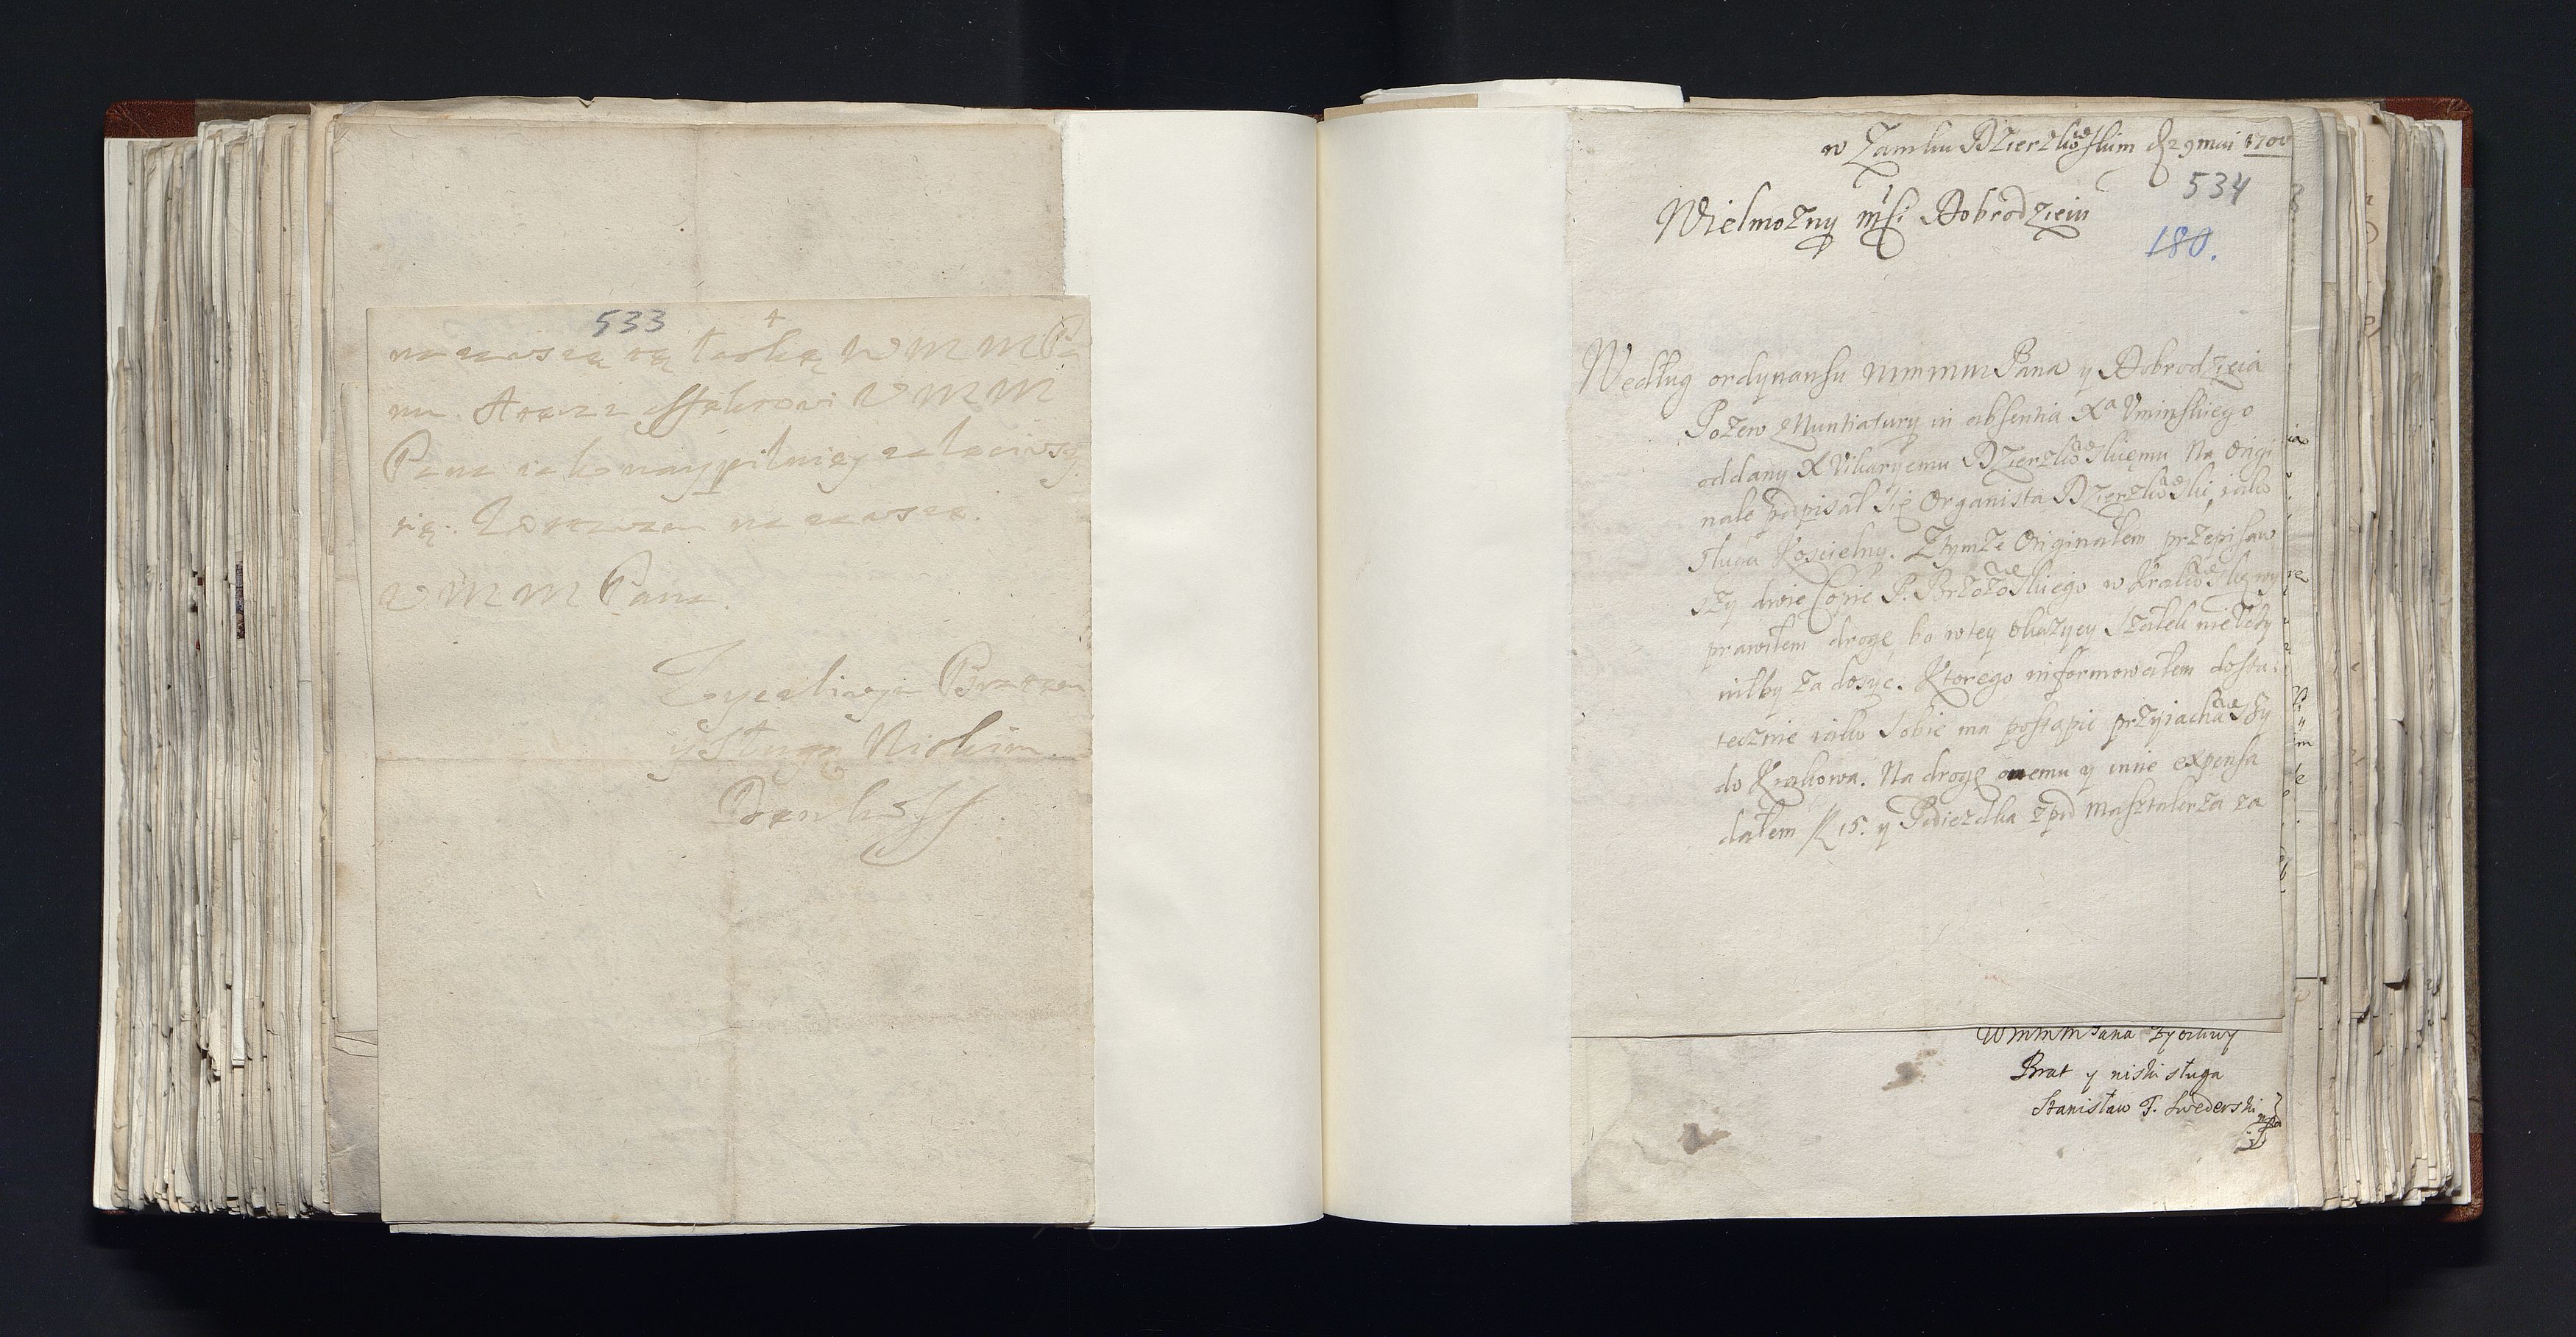 533
na zawszą tą łaskę W M M Pa
nu. A teraz Affektowi W M M
Pana iako naypilniey zaleciwszy
się. Zostawam na zawsze.
W M M Pana.
Zyczliwym Bratem
y sługą Niskim.
Denhoff
w Zamku Dzierzkowskim d 29 maii 1700
534
Wielmożny mći Dobrodzieiu
180.
Według ordynansu WMMM Pana y Dobrodzieia
Pozew Nuntiatury in absentia Xa Uminskiego
oddany X Vikaryemu Dzierzkowskiemu Na Origi
nale podpisał się Organista Dzierzkowski, iako
sługa Koscielny. Ztymze Originałem przepisaw
szy dwie Copie P. Brzozowskiego w Krakowską wy
prawiłem drogę bo wtey okazyey Szałek nie
niłby za dosyc. Ktorego informowałem dosta
tecznie iako sobie ma postąpic przyiachawszy
do Krakowa. Na drogę onemu y inne expensa
dałem fl 15. y Podiezdka zpod Masztalerza za
WMMM Pana Zyczliwy
Brat y niski sługa
Stanisław F. Swederski mpa